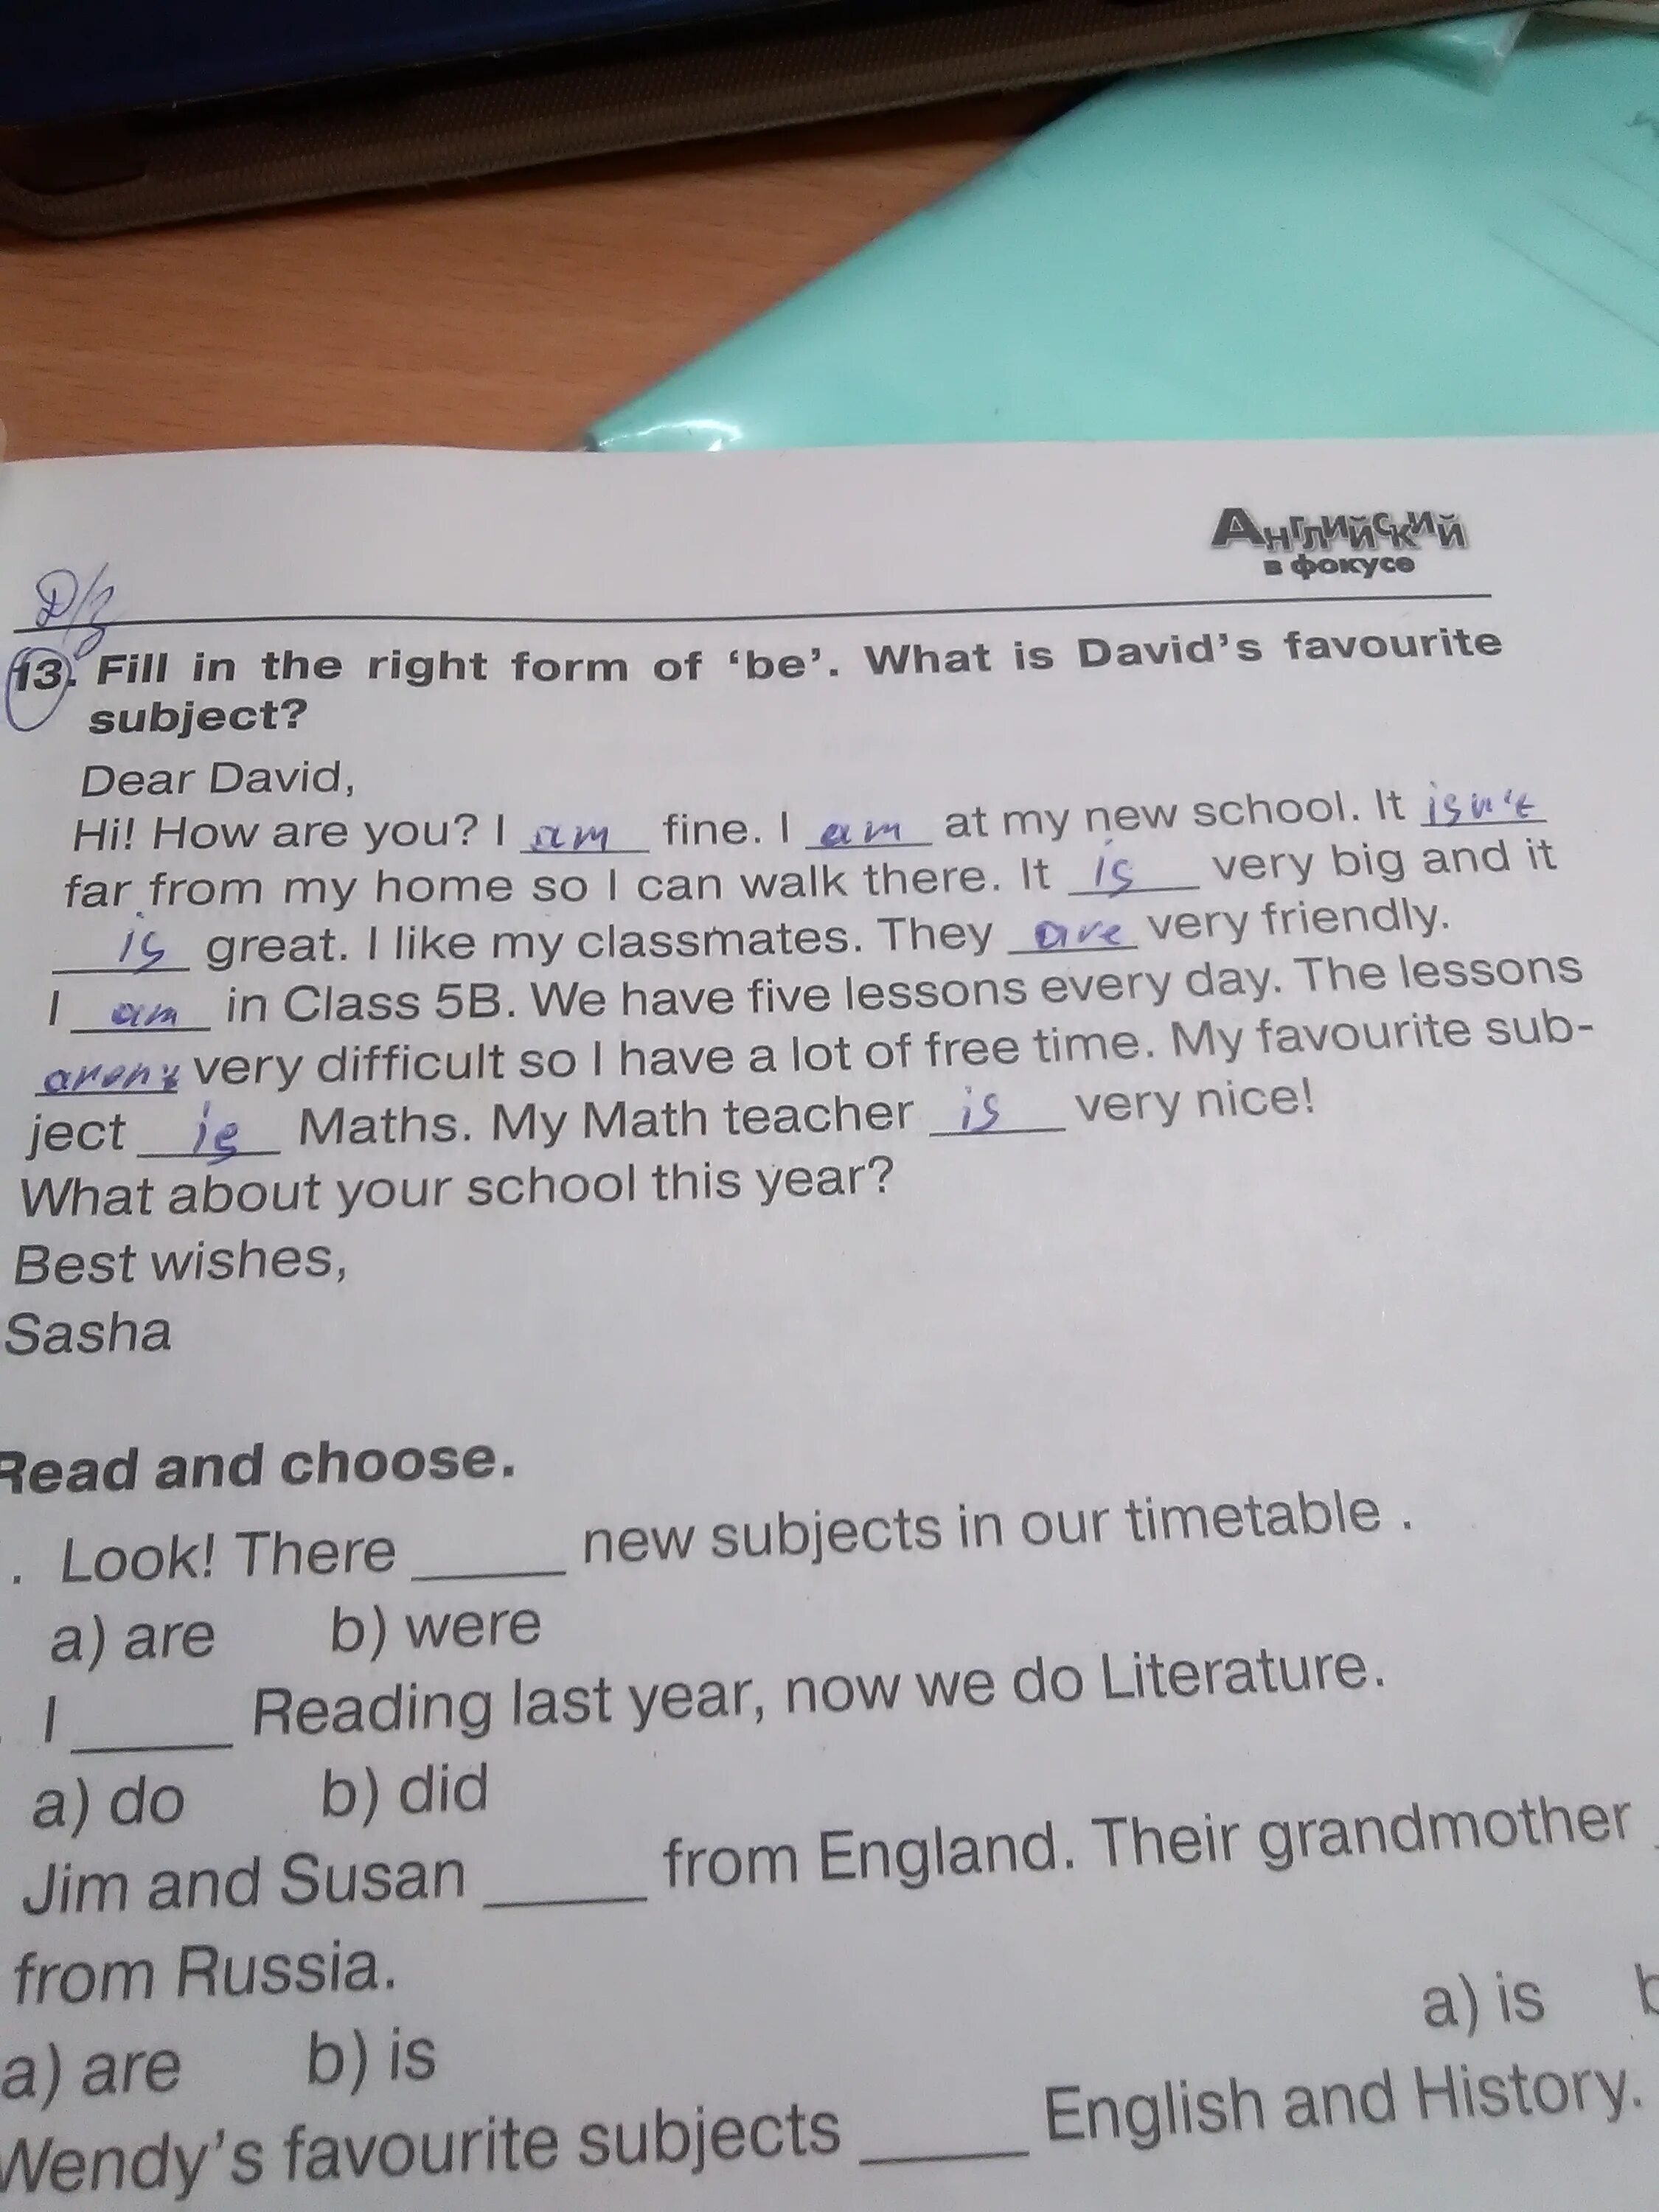 Английский
в фокусе
Д/з
13. Fill in the right form of ‘be’. What is David’s favourite
subject?
Dear David,
Hi! How are you? I am fine. I am at my new school. It isn't
far from my home so I can walk there. It is very big and it
is great. I like my classmates. They are very friendly.
I am in Class 5B. We have five lessons every day. The lessons
very difficult so I have a lot of free time. My favourite sub-
ject is Maths. My Math teacher is very nice!
What about your school this year?
Best wishes,
Sasha
Read and choose.
. Look! There _____ new subjects in our timetable .
a) are b) were
I _____ Reading last year, now we do Literature.
a) do b) did
Jim and Susan _____ from England. Their grandmother
from Russia.
a) is b
a) are b) is
Wendy’s favourite subjects _____ English and History.